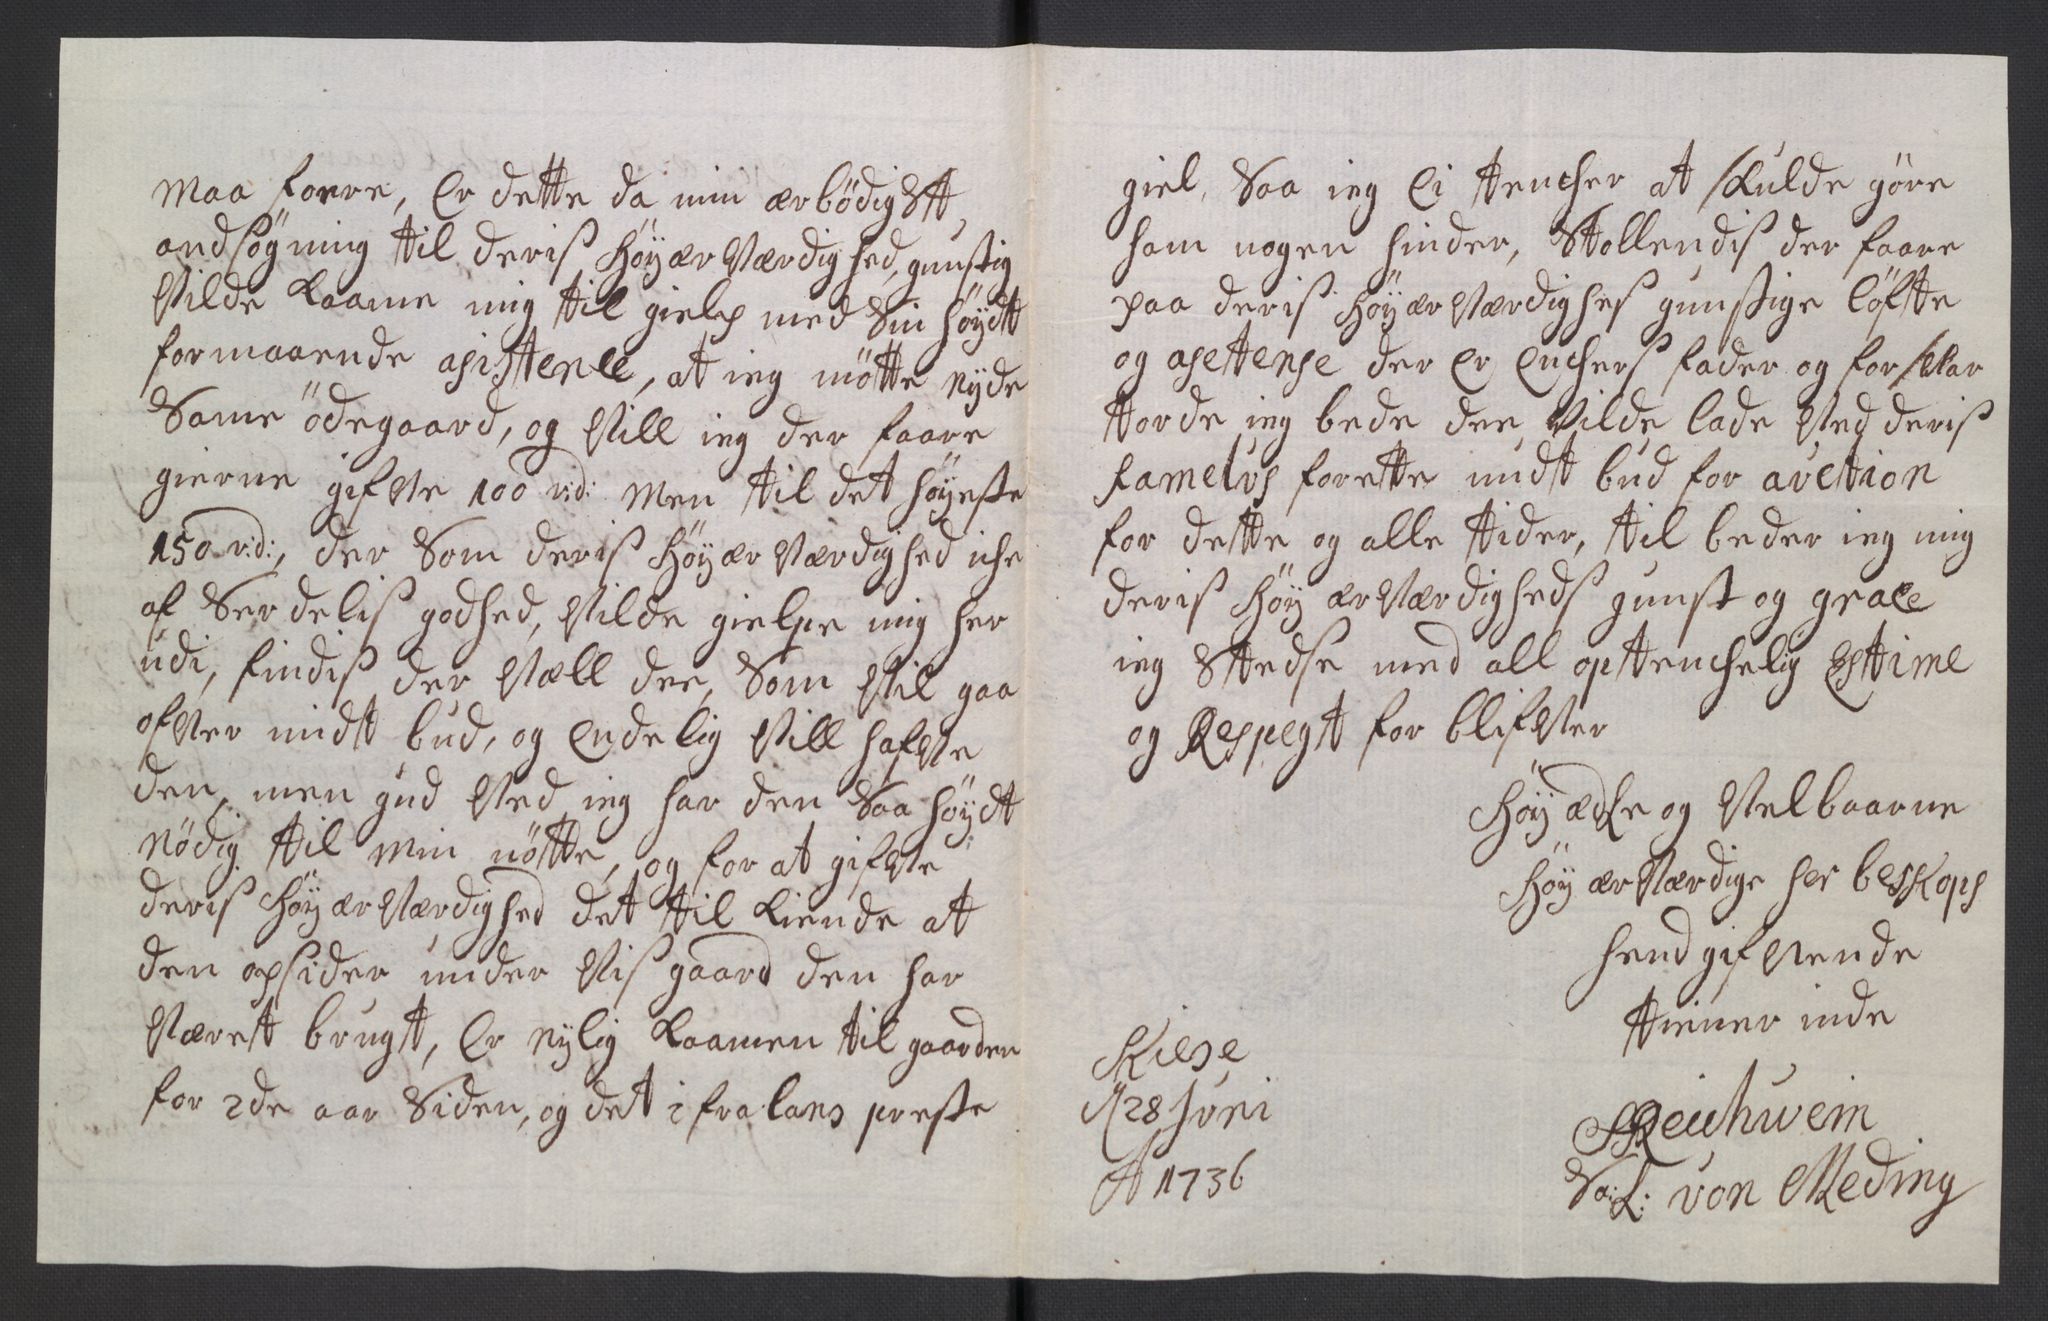 maa forre, Er dette da min ærbödigstt
andsögning til deris Höyærværdighed, gunstig
vilde kaame mig til gielp med sin höydt
formaaende asistence, at ieg mötte nyde
same ödegaard, og vill ieg der faare
gierne gifve 100 rd: men til det höyeste
150 rd:, der som deris Höyærværdighed iche
af serdelis godhed, vilde gielpe mig her
udi, findis der væll dee, som vil gaa
ofver midt bud, og Endelig vill hafve
den, men gud ved ieg har den saa höydt
nödig til min nötte, og for at gifve
deris Höyærværdighed det til kiende at
den opsider under vis gaard den har
været brugt, Er nylig kaamen til gaarden
for 2de aar siden, og det i fralans preste
giel, saa ieg Ei tencher at skulde göre
ham nogen hinder, stollendis der faare
paa deris Höyærværdighes gunstige löfte
og asetense der Er Enchers fader og forsvar
torde ieg bede dee vilde lade ved deris
famelus forette midt bud for auction
for dette og alle tider, til beder ieg mig
deris Höy ærværdigheds gunst og grace
ieg stedse med all optenchelig Estime
og Respegt for blifver
Höy ædle og velbaarne
Höy ærværdige her beskops
hendgifvende
tiener inde
Kiese
d 28 Juni
A 1736
S Reichwein
Sa: L: von Meding